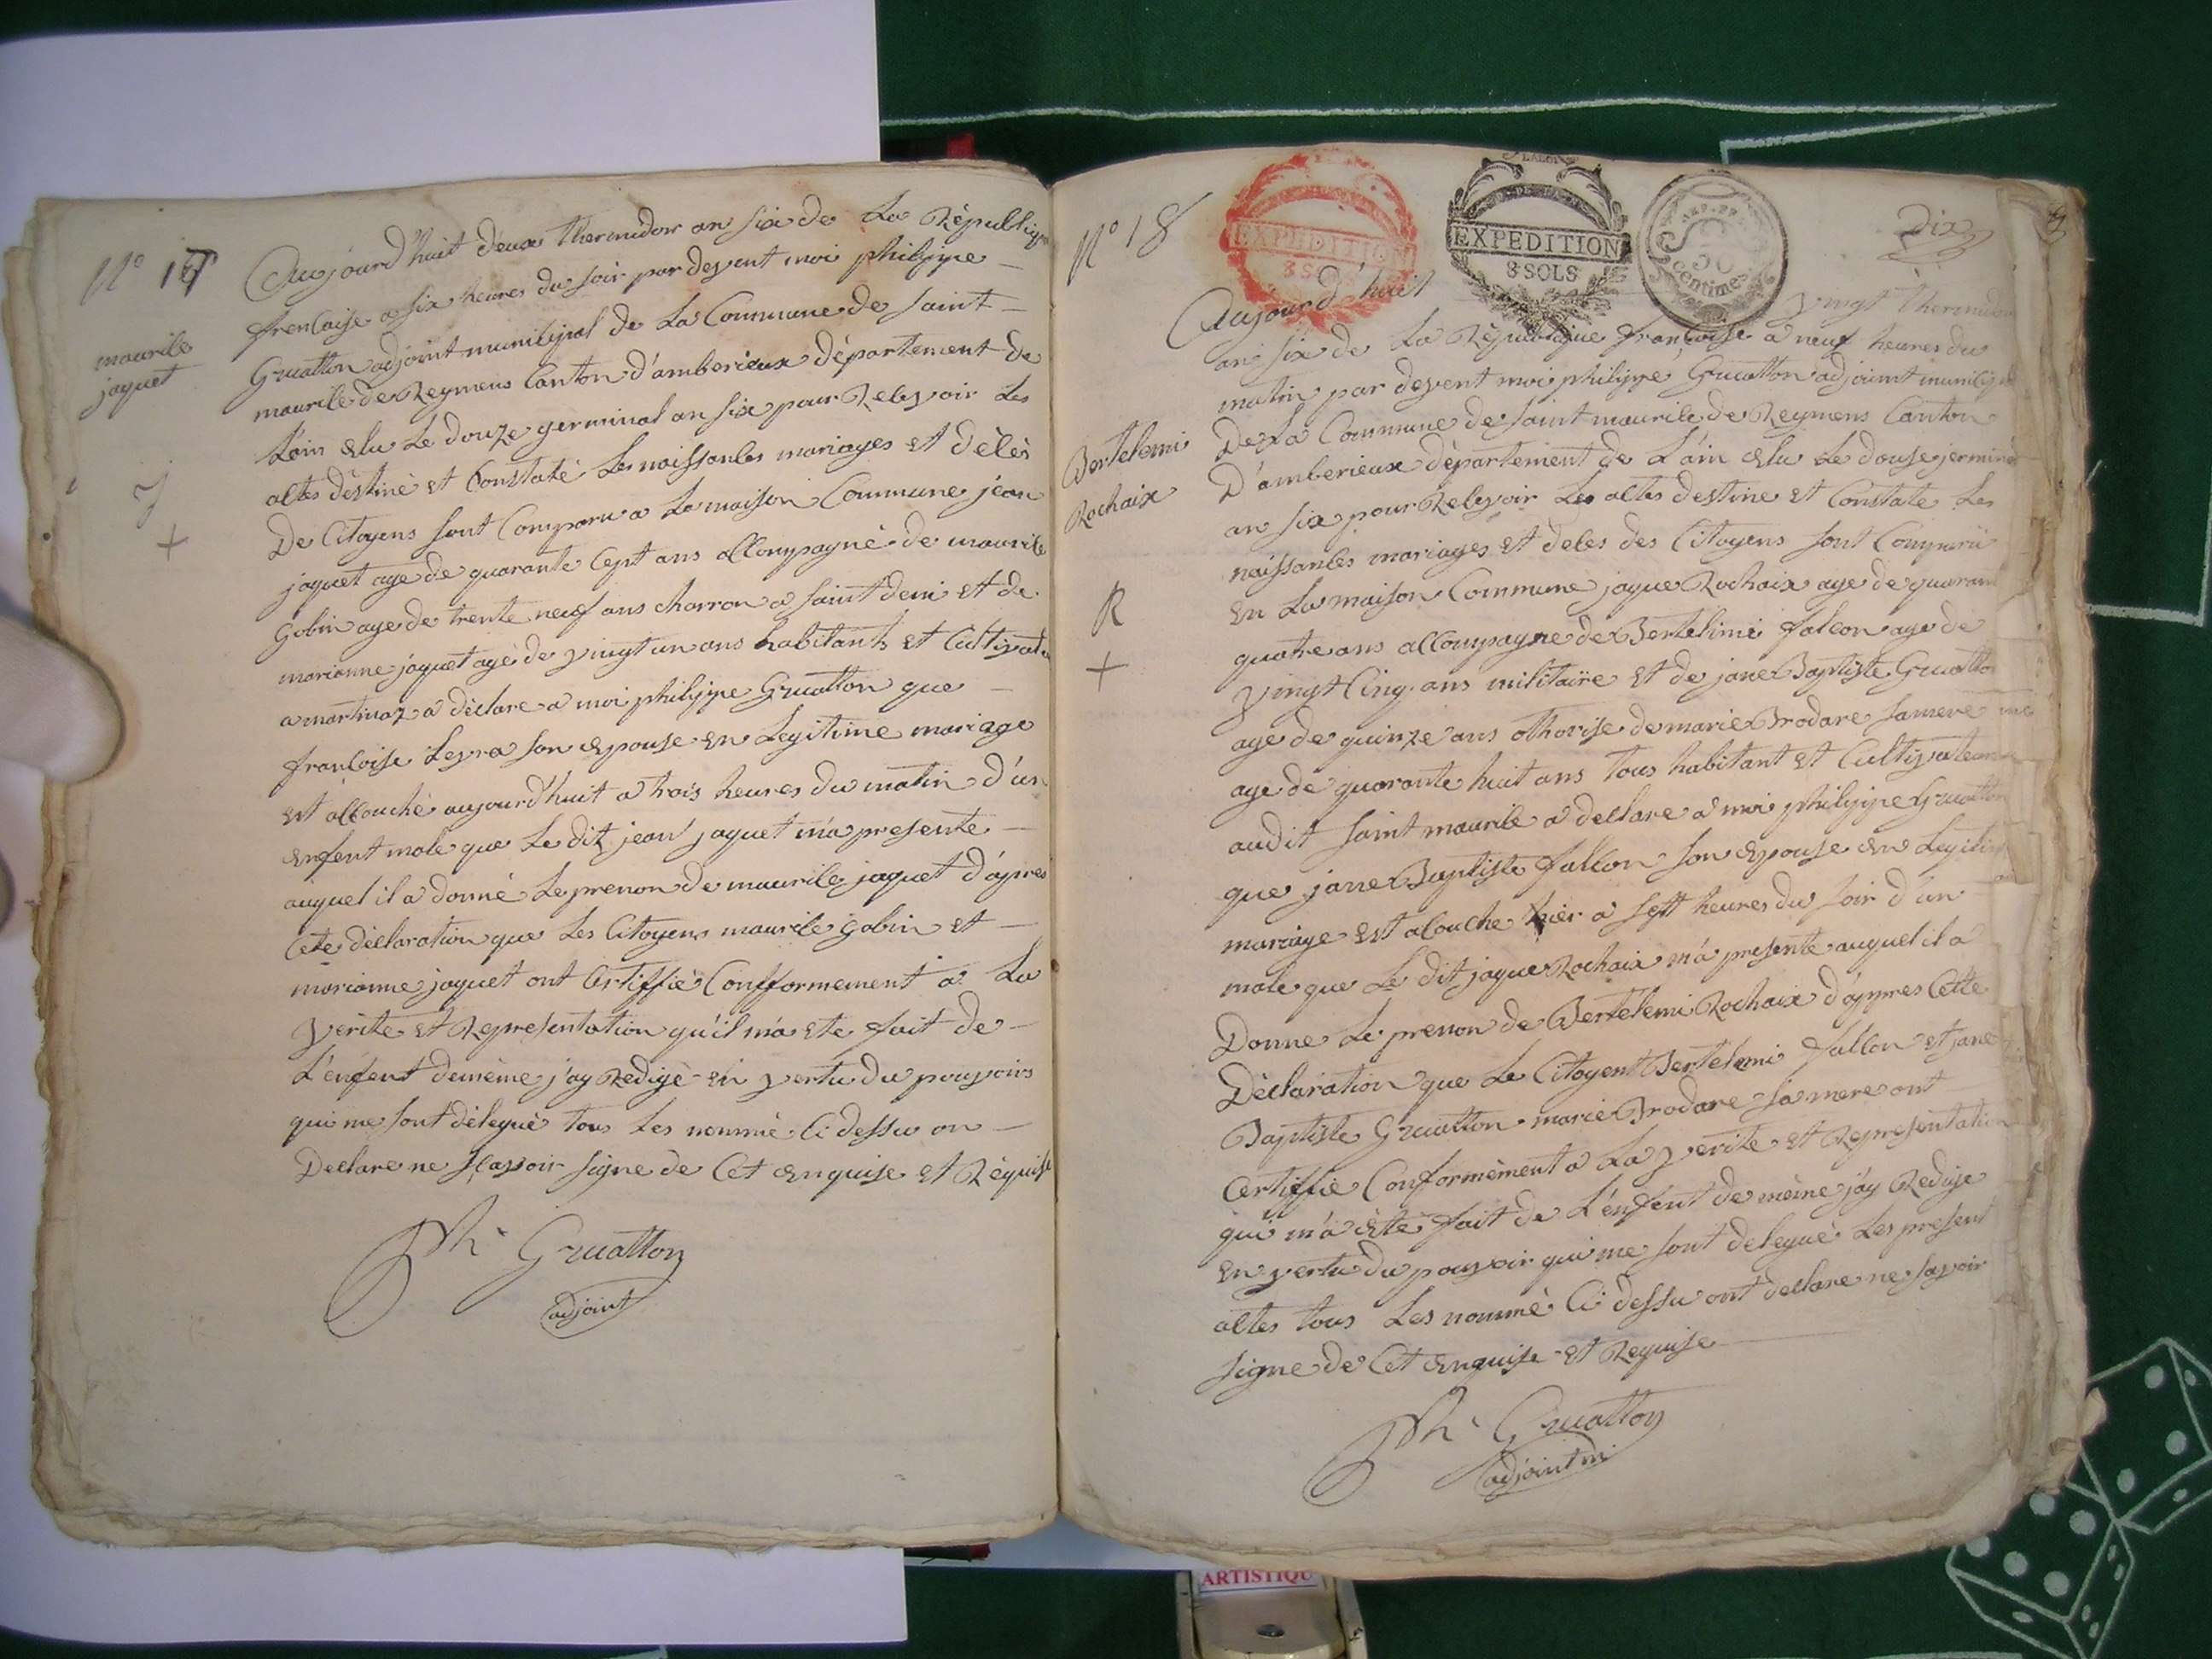 N° 17
maurile
jaquet
J
+
Aujourd'huit deux thermidor an six de La Républiqe
frencaise a six heures du soir par devent moi philippe
Gruatton adjoint municipal de La Commune de saint
maurile de Reymens Canton d'amberieux département de
L'ain élu Le douze germinal an six pour Relevoir Les
altes destiné et Constaté Les naissanles mariages et délès
De Citoyens sont Comparu a La maison Commune jean
jaquet age de quarante Cept ans allompagné de maurile
Gobin age de trente neuf ans charron a saint deni et de
marianne jaquet agé de vingt un ans habitants et Cultivate
a martinaz a déclare a moi philippe Gruatton que
francoise Leyra son epouse en Legitime mariage
est allouché aujourd'huit a trois heures du matin d'un
enfent male que Le dit jean jaquet m'a presente
auquel il a donné Le prenon de maurile jaquet d'apres
Cete déclaration que Les Citoyens maurile Gobin et
marianne jaquet ont Certiffié Confformement a La
verite et Representation qu'il m'a ete fait de
L'enfent demème j'ay Redigé en vertu du pouvoirs
qui me sont délegué tous Les nommé Ci dessu on
Declare ne sçavoir signe de Cet enquise et Réquise
Ph Gruatton
adjoint
N° 18
EXPEDITION
8 SOLS
EXPEDITION
8 SOLS
REP. FR.
50
Centimes
Dix
Bertelemi
Rochaix
R
+
Aujourd'huit vingt thermidor
an six de La République francaise a neuf heures du
matin par devent moi philippe Gruatton adjoint municipal
De La Commune de saint maurile de Reymens Canton
D'amberieux département de L'ain elu Le douse jerminal
an six pour Relevoir Les altes destine et Constate Les
naissanles mariages et deles des Citoyens sont Comparu
en La maison Commune jaque Rochaix age de quarant
quatre ans allompagne de Bertelimi falcon age de
vingt Cinq ans militaire et de jane Baptiste Gruatto
age de quinze ans othorise de marie Brodare samere
age de quarante huit ans tous habitant et Cultivateur
audit saint maurile a declare a moi philippe Gruatton
que jane Baptiste fallon son epouse en Legitim
mariage est alouche hier a sept heures du soir d'un
male que Le dit jaque Rochaix m'a presente auquel il a
Donne Le prenon de Bertelemi Rochaix d'appres Cette
Déclaration que Le Citoyent Bertelemi fallon et jane
Baptiste Gruatton marie Brodare sa mere ont
Certiffie Conformément a La verite et Representation
qui m'a été fait de L'enfent de mème j'ay Redige
en vertu du pouvoir qui me sont delegué Les present
altes tous Les nommé Ci dessu ont declare ne savoir
signe de Cet enquise et Requise
Ph Gruatton
adjoint m
ARTISTIQU